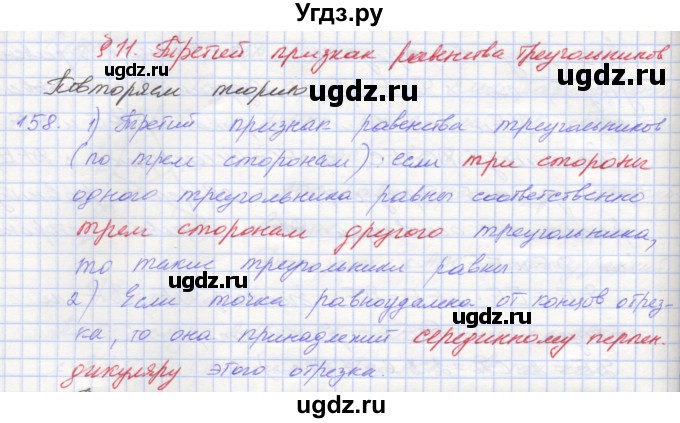 Угдз.ру
§ 11. Третий признак равенства треугольников
ugdz.ru
Повторяем теорию
ugdz.ru
158. 1) Третий признак равенства треугольников
ugdz.ru
(по трем сторонам): если три стороны
одного треугольника равны соответственно
ugdz.ru
трем сторонам другого треугольника,
то такие треугольники равны.
ugdz.ru
2) Если точка равноудалена от концов отрез-
ка, то она принадлежит серединному перпен-
ugdz.ru
дикуляру этого отрезка.
ugdz.ru